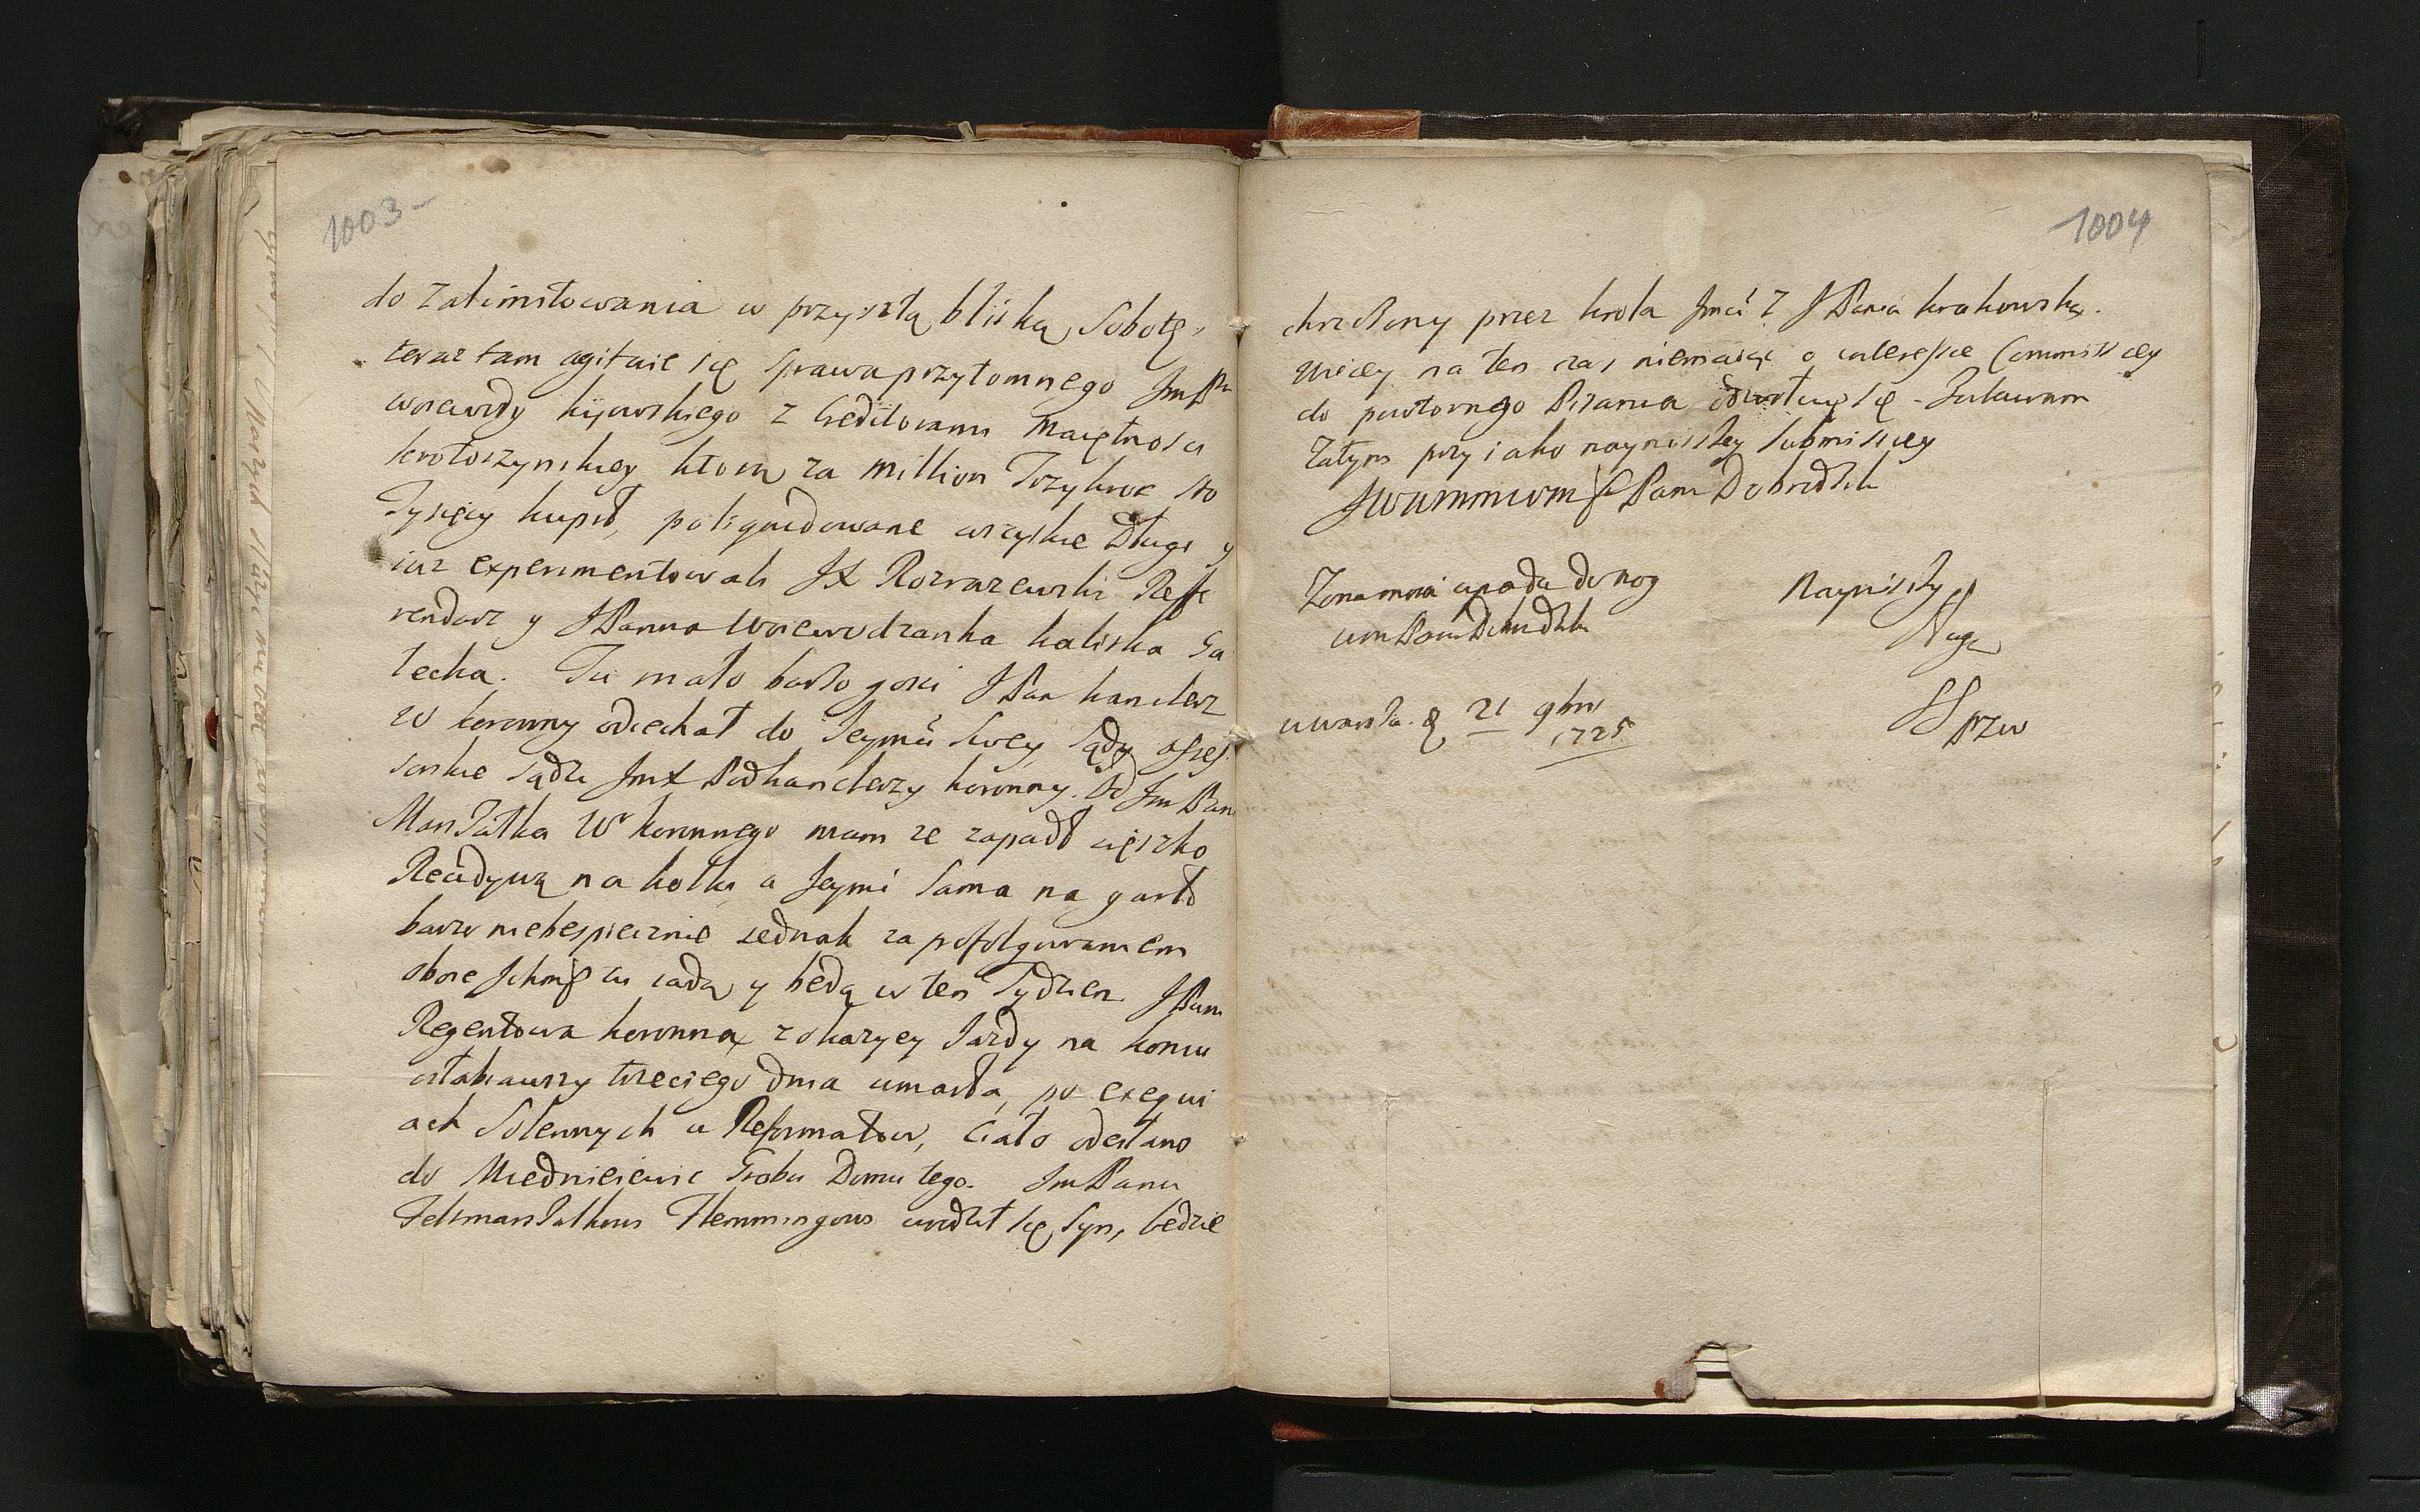 1003
do zakinstowania w przyszłą bliską Sobotę,
teraz tam agituie się Sprawa przytomnego Jm Pa
woiewody kijowskiego z Creditorami Maiętnosci
krotoszynskiey ktorą za million Trzykroc sto
Tysięcy kupił, poliquidowane wszystkie Długi y
iuz experimentowali JX Rozrazewski Refe
rendarz y JPanna Woiewodzanka kaliska Ga
lecka. Tu mało bardzo gosci JPan kanclerz
W koronny odiechał do Jeymci Swey Sądy asses
sorskie sądzi JmX Podkanclerzy koronny. Od Jm Pana
Marszałka W koronnego mam ze zapadł cięszko
Recidywą na kolki a Jeymć Sama na gardło
barzo niebespiecznie iednak za pofolgowaniem
oboie Ichmć tu iadą y będą w ten Tydzien. JPani
Regentowa koronna z okazyey Jazdy na koniu
trzeciego dnia umarła, po exequi
ach Solennych u Reformatow, Ciało odesłano
do Miedniewic Grobu Domu tego. Jm Panu
Feltmarszałkowi Flemmingowi urodził się Syn, będzie
1004
chrzczony przez krola Jmci Z JPanią krakowską.
Więcy na ten czas niemaiąc o interessie Commissiey
do powtornego Pisania odwołuię się
Zatym przy iako naynisszey Submissiey
JWWMMWM Pana Dobrodzieia
Zona moia upada do nog
WM Panu Dobrodzieiowi
Naynisszy
Sługa
w Warsza. d 21 9bris
1725